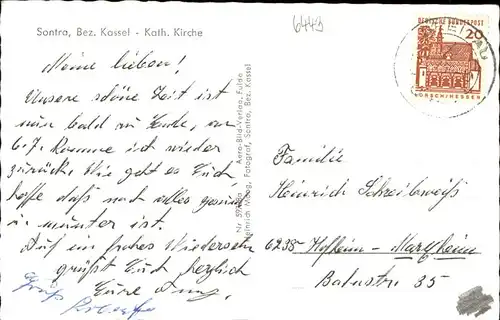 Sontra, Bez. Kassel - Kath. Kirche
6443
DEUTSCHE BUNDESPOST
20
LORSCH/HESSEN
Meine lieben!
Unsere schöne Zeit ist
nun bald zu Ende, am
6.7. komme ich wieder
zurück. Wie geht es Euch
hoffe daß noch alles gesund
u. munter ist.
Auf ein frohes Wiedersehn
grüßt Euch herzlich
Eure
Gruß
Aero-Bild-Verlag, Fulda
Heinrich Maag, Fotograf, Sontra, Bez. Kassel
Familie
Heinrich Scheibweiß
6238 Hofheim-Marxheim
35